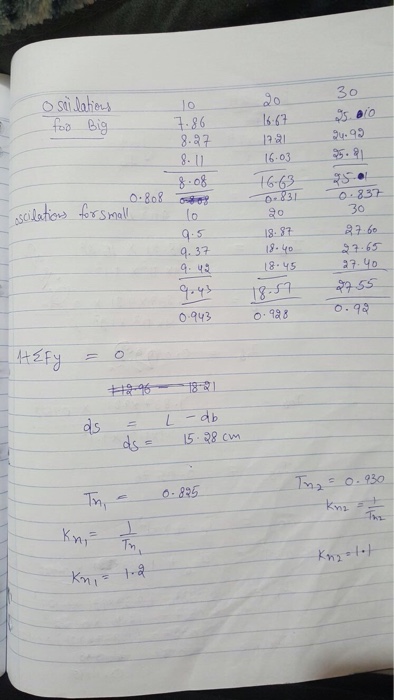 Oscilations 10 20 30
for Big 7.86 16.67 25.010
8.27 17.21 24.92
8.11 16.03 25.21
8.08 16.63 25.01
0.808 0.831 0.837
oscilations for small 10 20 30
9.5 18.87 27.60
9.37 18.40 27.65
9.42 18.45 27.40
9.43 18.57 27.55
0.943 0.928 0.92
ΣFy = 0
+12.96 — 18.21
ds = L - db
ds = 15.28 cm
Tn1 = 0.825 Tn2 = 0.930
Kn1 = 1/Tn1 Kn2 = 1/Tn2
Kn1 = 1.2 Kn2 = 1.1